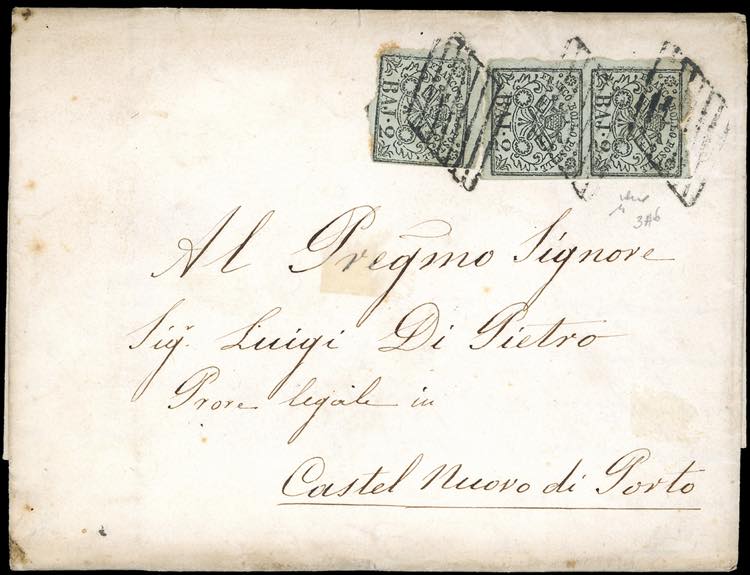 BAJ·2
BAJ·2
BAJ·2
BOLLO POSTALE
3A6
Al Pregmo Signore
Sigr. Luigi Di Pietro
Prore legale in
Castel Nuovo di Porto